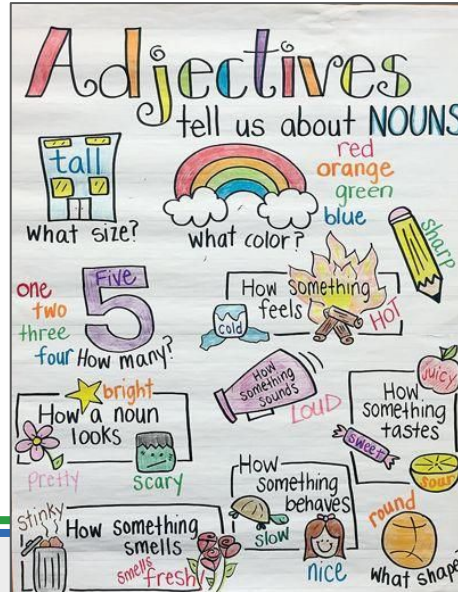 Adjectives
tell us about NOUNS
tall
What size?
What color?
red
orange
green
blue
sharp
one
two
three
four
Five
5
How many?
How something
feels
cold
HOT
bright
How a noun
looks
pretty
scary
How
something
sounds
LOUD
juicy
How
something
tastes
sweet
sour
stinky
How something
smells
smells
fresh!
How
something
behaves
slow
nice
round
What shape